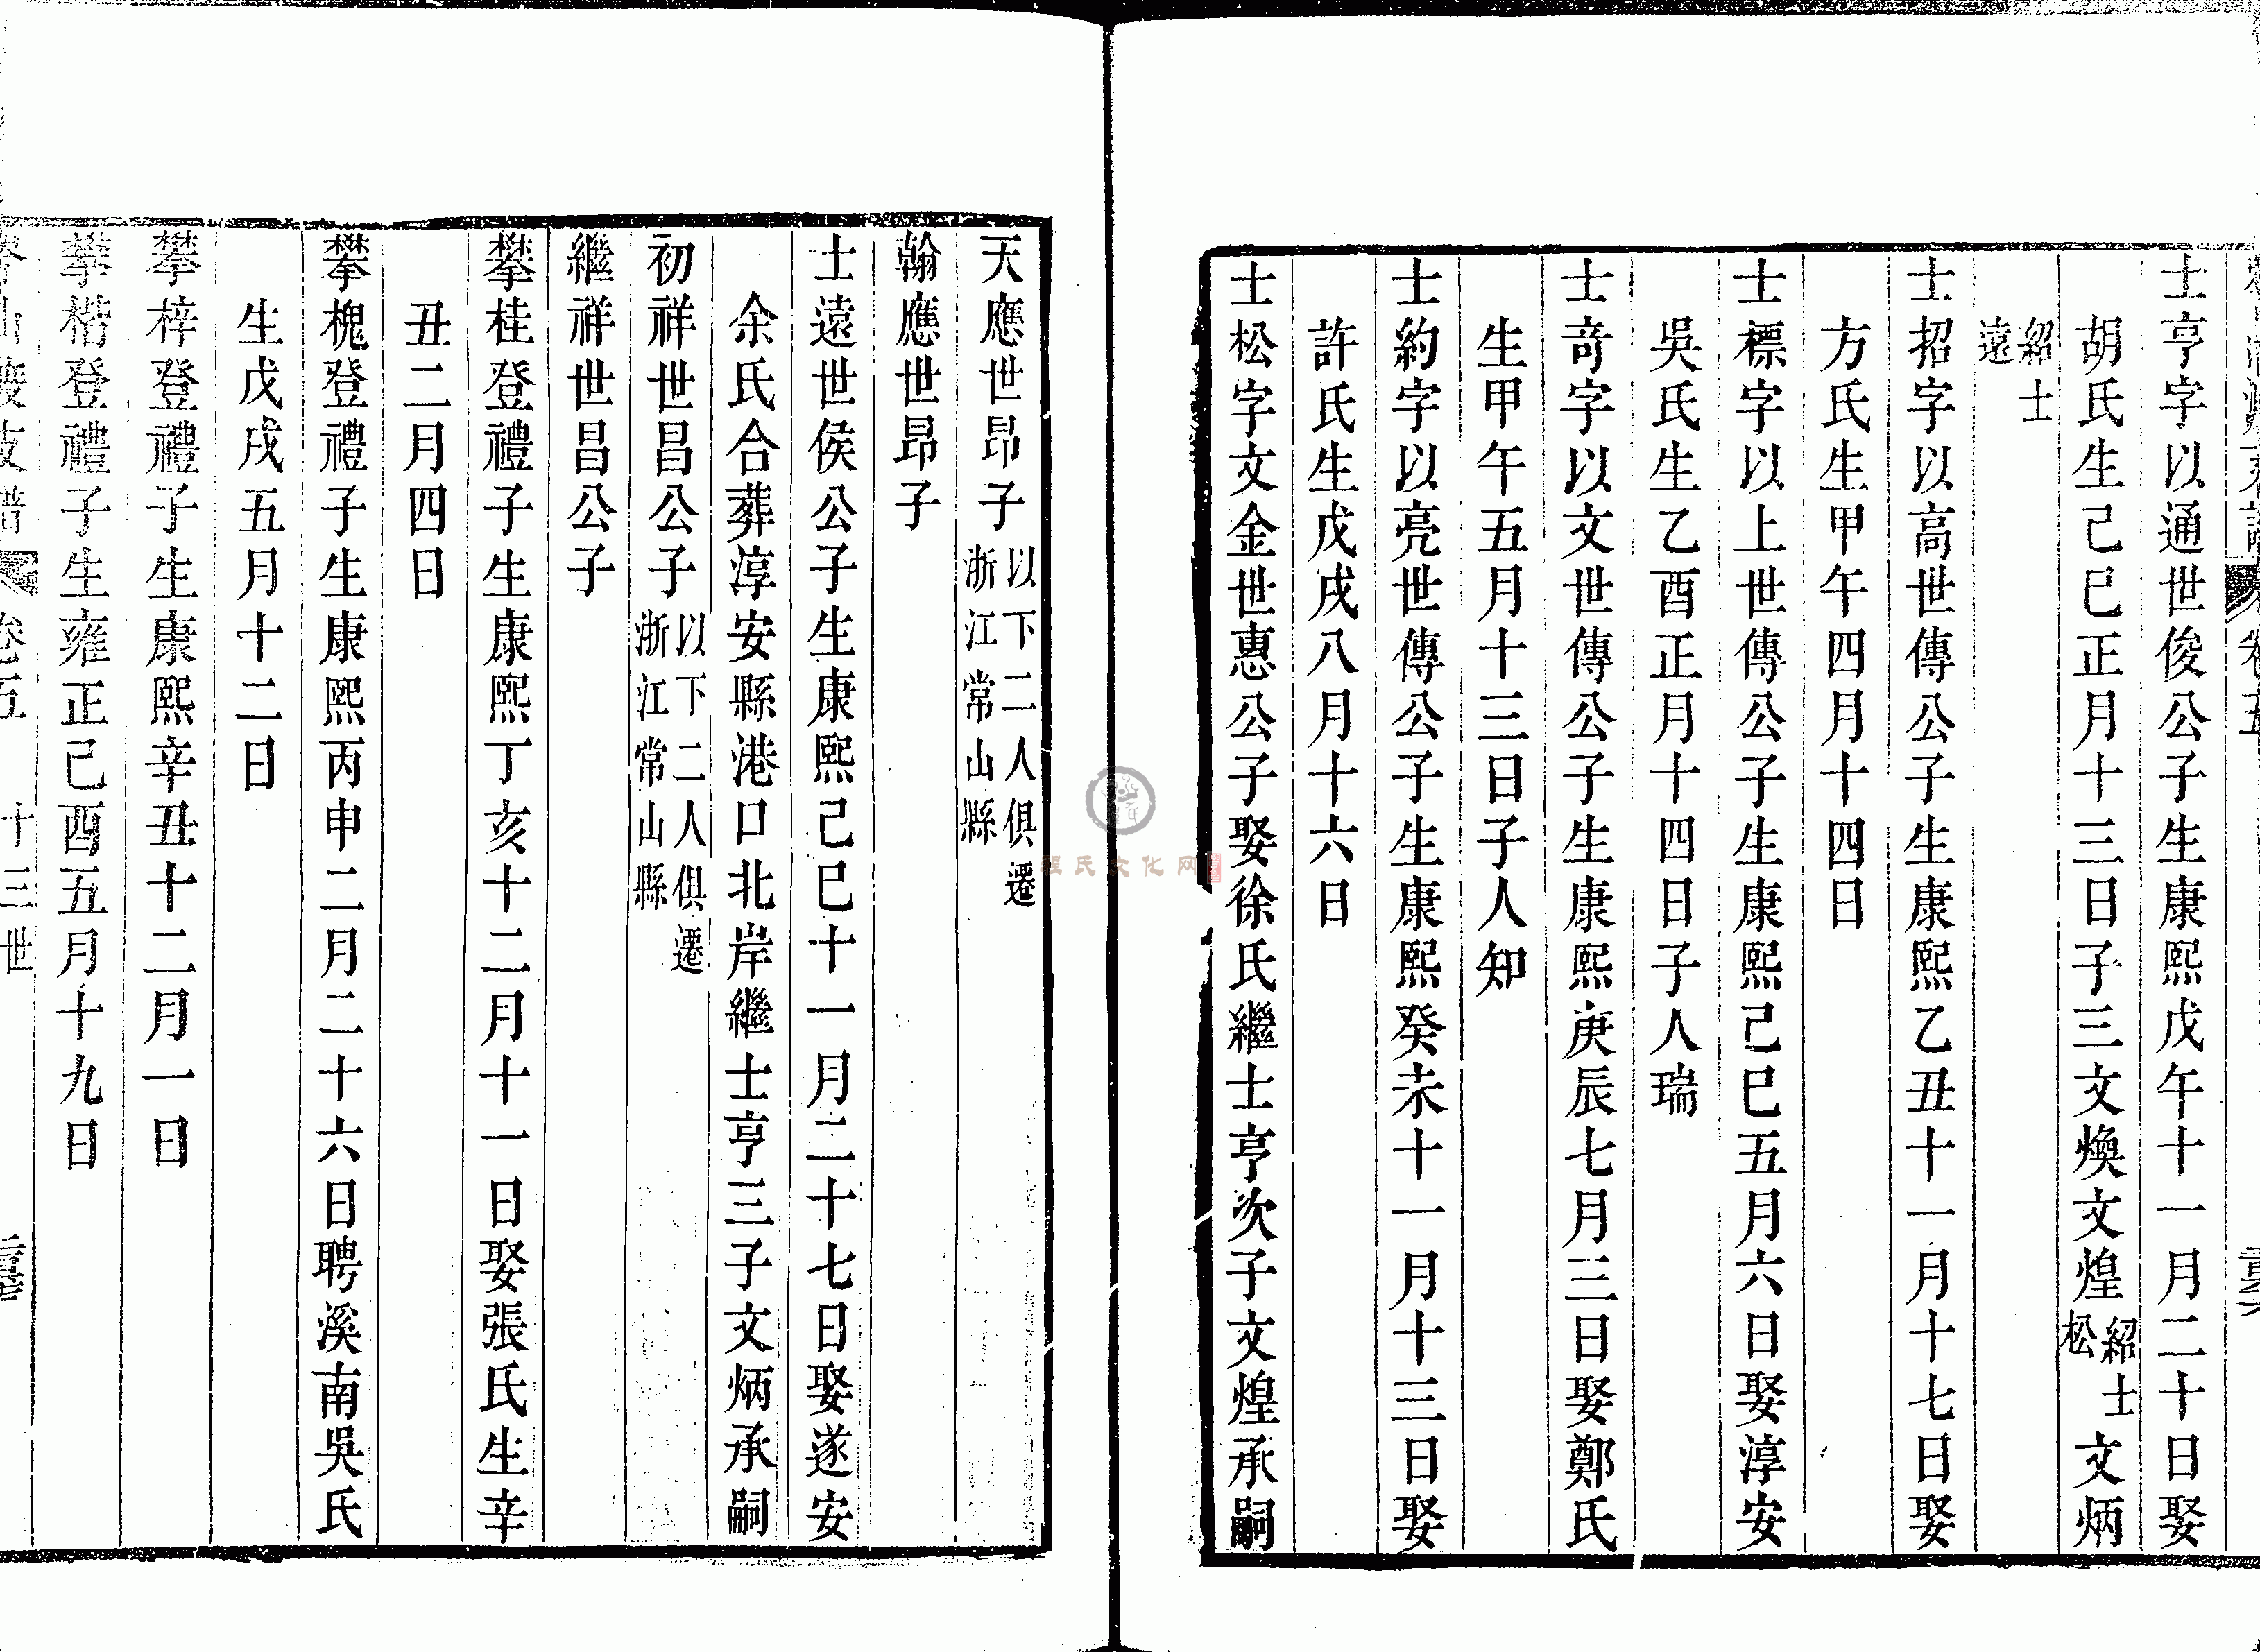 士亨字以通世俊公子生康熙戊午十一月二十日娶
胡氏生己巳正月十三日子三文煥文煌紹士松文炳
紹士遠
士招字以高世傳公子生康熙乙丑十一月十七日娶
方氏生甲午四月十四日
士標字以上世傳公子生康熙己巳五月六日娶淳安
吳氏生乙酉正月十四日子人瑞
士奇字以文世傳公子生康熙庚辰七月三日娶鄭氏
生甲午五月十三日子人知
士約字以亮世傳公子生康熙癸未十一月十三日娶
許氏生戊戌八月十六日
士松字文金世惠公子娶徐氏繼士亨次子文煌承嗣
天應世昂子以下二人俱遷浙江常山縣
翰應世昂子
士遠世侯公子生康熙己巳十一月二十七日娶遂安
余氏合葬淳安縣港口北岸繼士亨三子文炳承嗣
初祥世昌公子以下二人俱遷浙江常山縣
繼祥世昌公子
攀桂登禮子生康熙丁亥十二月十一日娶張氏生辛
丑二月四日
攀槐登禮子生康熙丙申二月二十六日聘溪南吳氏
生戊戌五月十二日
攀梓登禮子生康熙辛丑十二月一日
攀楷登禮子生雍正己酉五月十九日
卷五 十三世
程氏文化网